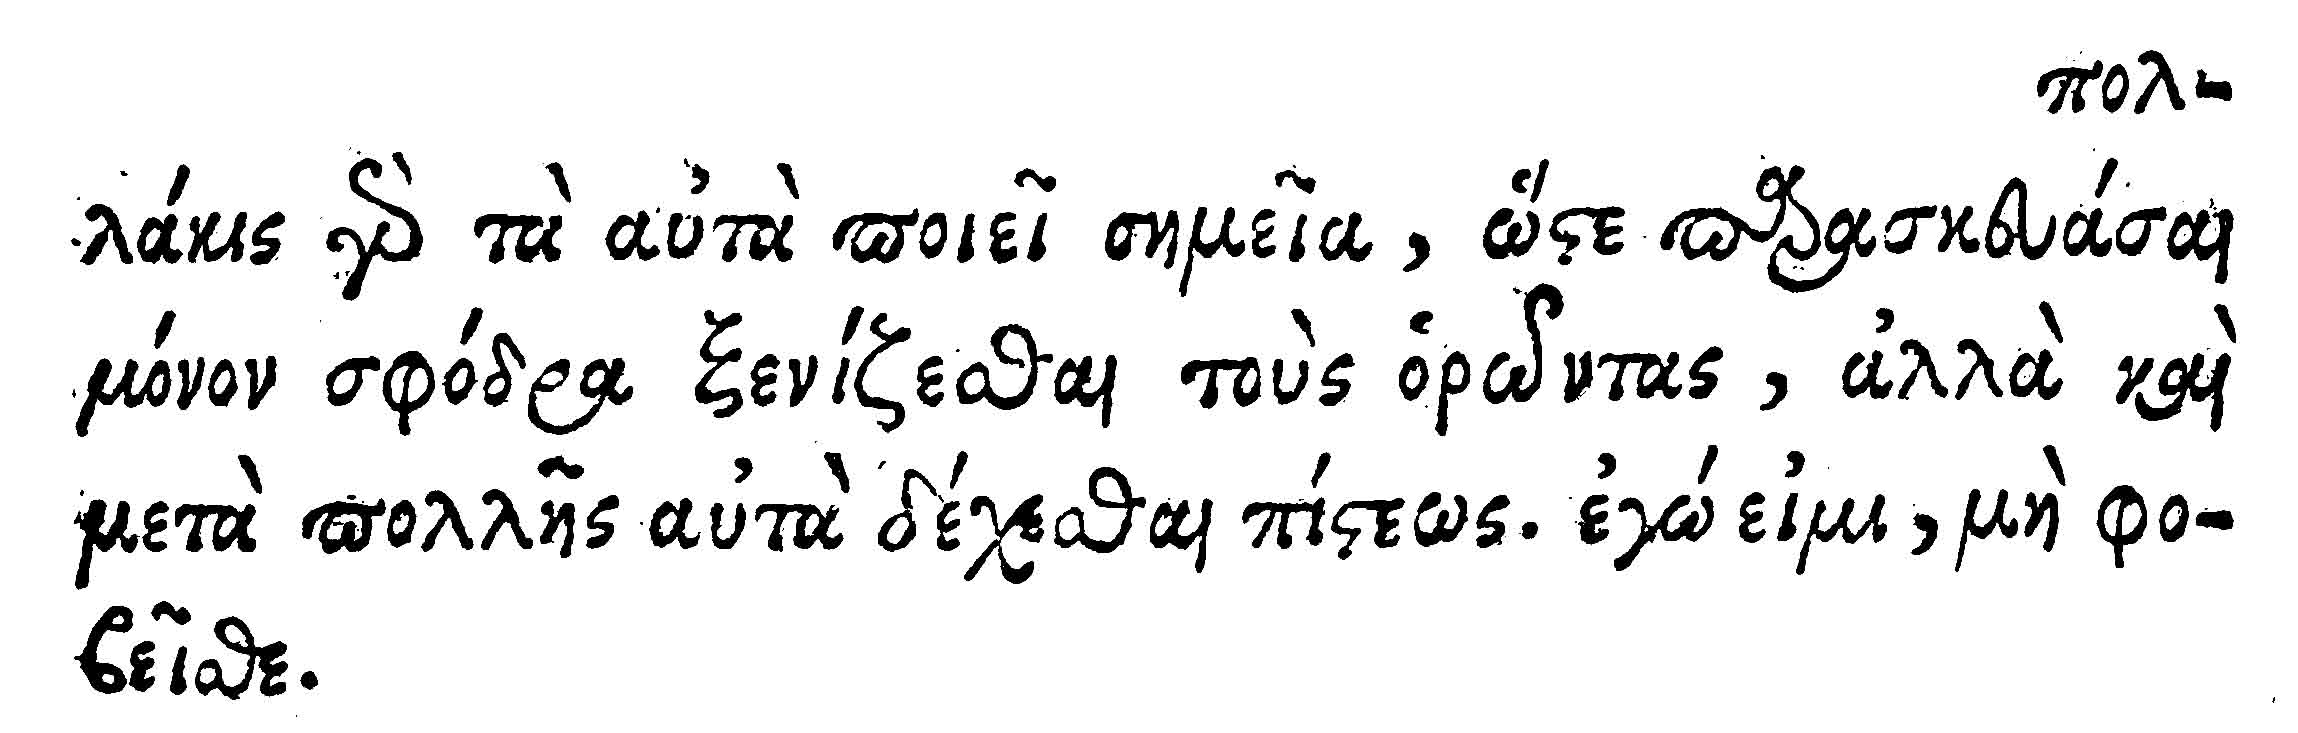 πολ-
λάκις γὰρ τὰ αὐτὰ ποιεῖ σημεῖα, ὥστε παρασκευάσαι
μόνον σφόδρα ξενίζεσθαι τοὺς ὁρῶντας, ἀλλὰ καὶ
μετὰ πολλῆς αὐτὰ δέχεσθαι πίστεως. ἐγώ εἰμι, μὴ φο-
βεῖσθε.